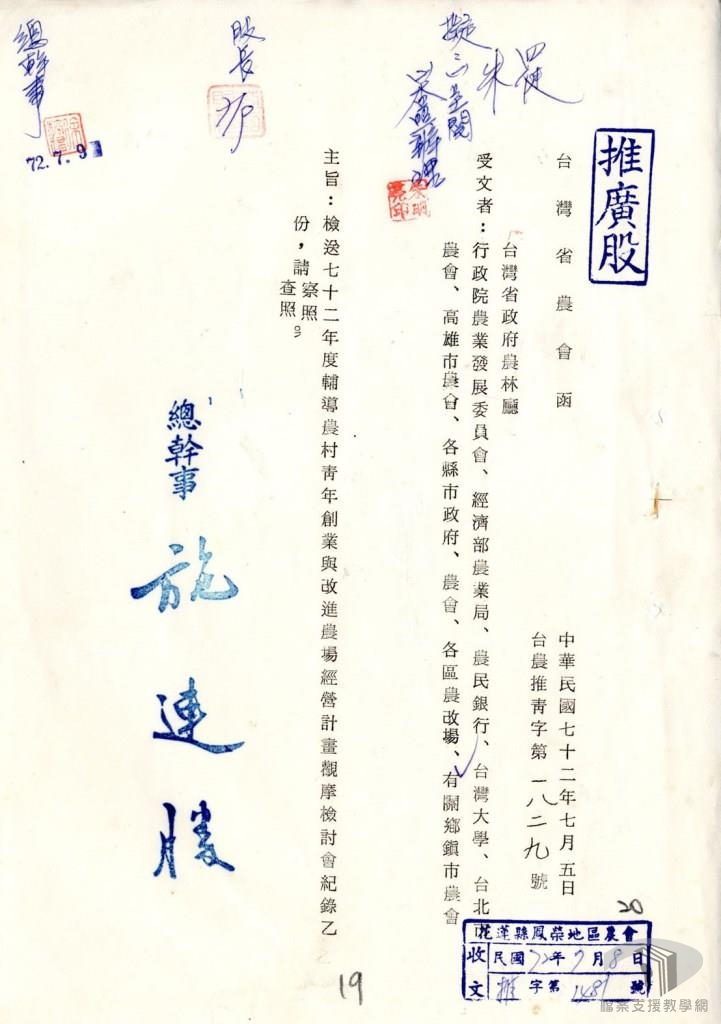 推廣股
台灣省農會函
中華民國七十二年七月五日
台農推青字第一八二九號
受文者：
台灣省政府農林廳
行政院農業發展委員會、經濟部農業局、農民銀行、台灣大學、台北市
農會、高雄市農會、各縣市政府、農會、各區農改場、有關鄉鎮市農會
主旨：檢送七十二年度輔導農村青年創業與改進農場經營計畫觀摩檢討會紀錄乙
份，請察照
查照。
總幹事 施連勝
股長
總幹事
72.7.9
花蓮縣鳳榮地區農會
收文
民國72年7月8日
推字第1489號
20
19
檔案支援教學網